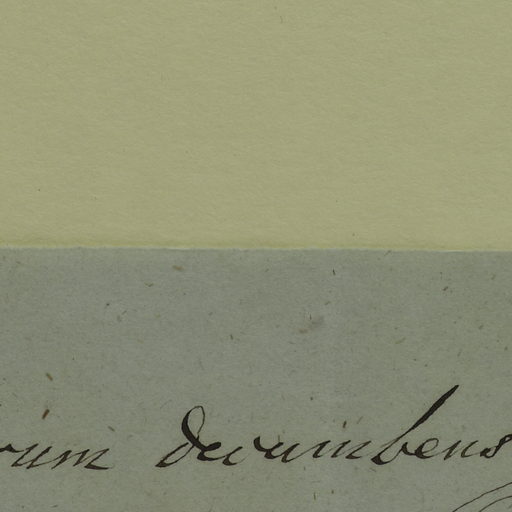 rum decumbens